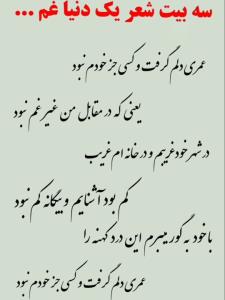 سه بیت شعر یک دنیا غم ...
عمری دلم گرفت و کسی جز خودم نبود
یعنی که در مقابل من غیر غم نبود
در شهر خود غریبم و در خانه ام غریب
کم بود آشنایم و بیگانه کم نبود
با خود به گور میبرم این درد کهنه را
عمری دلم گرفت و کسی جز خودم نبود